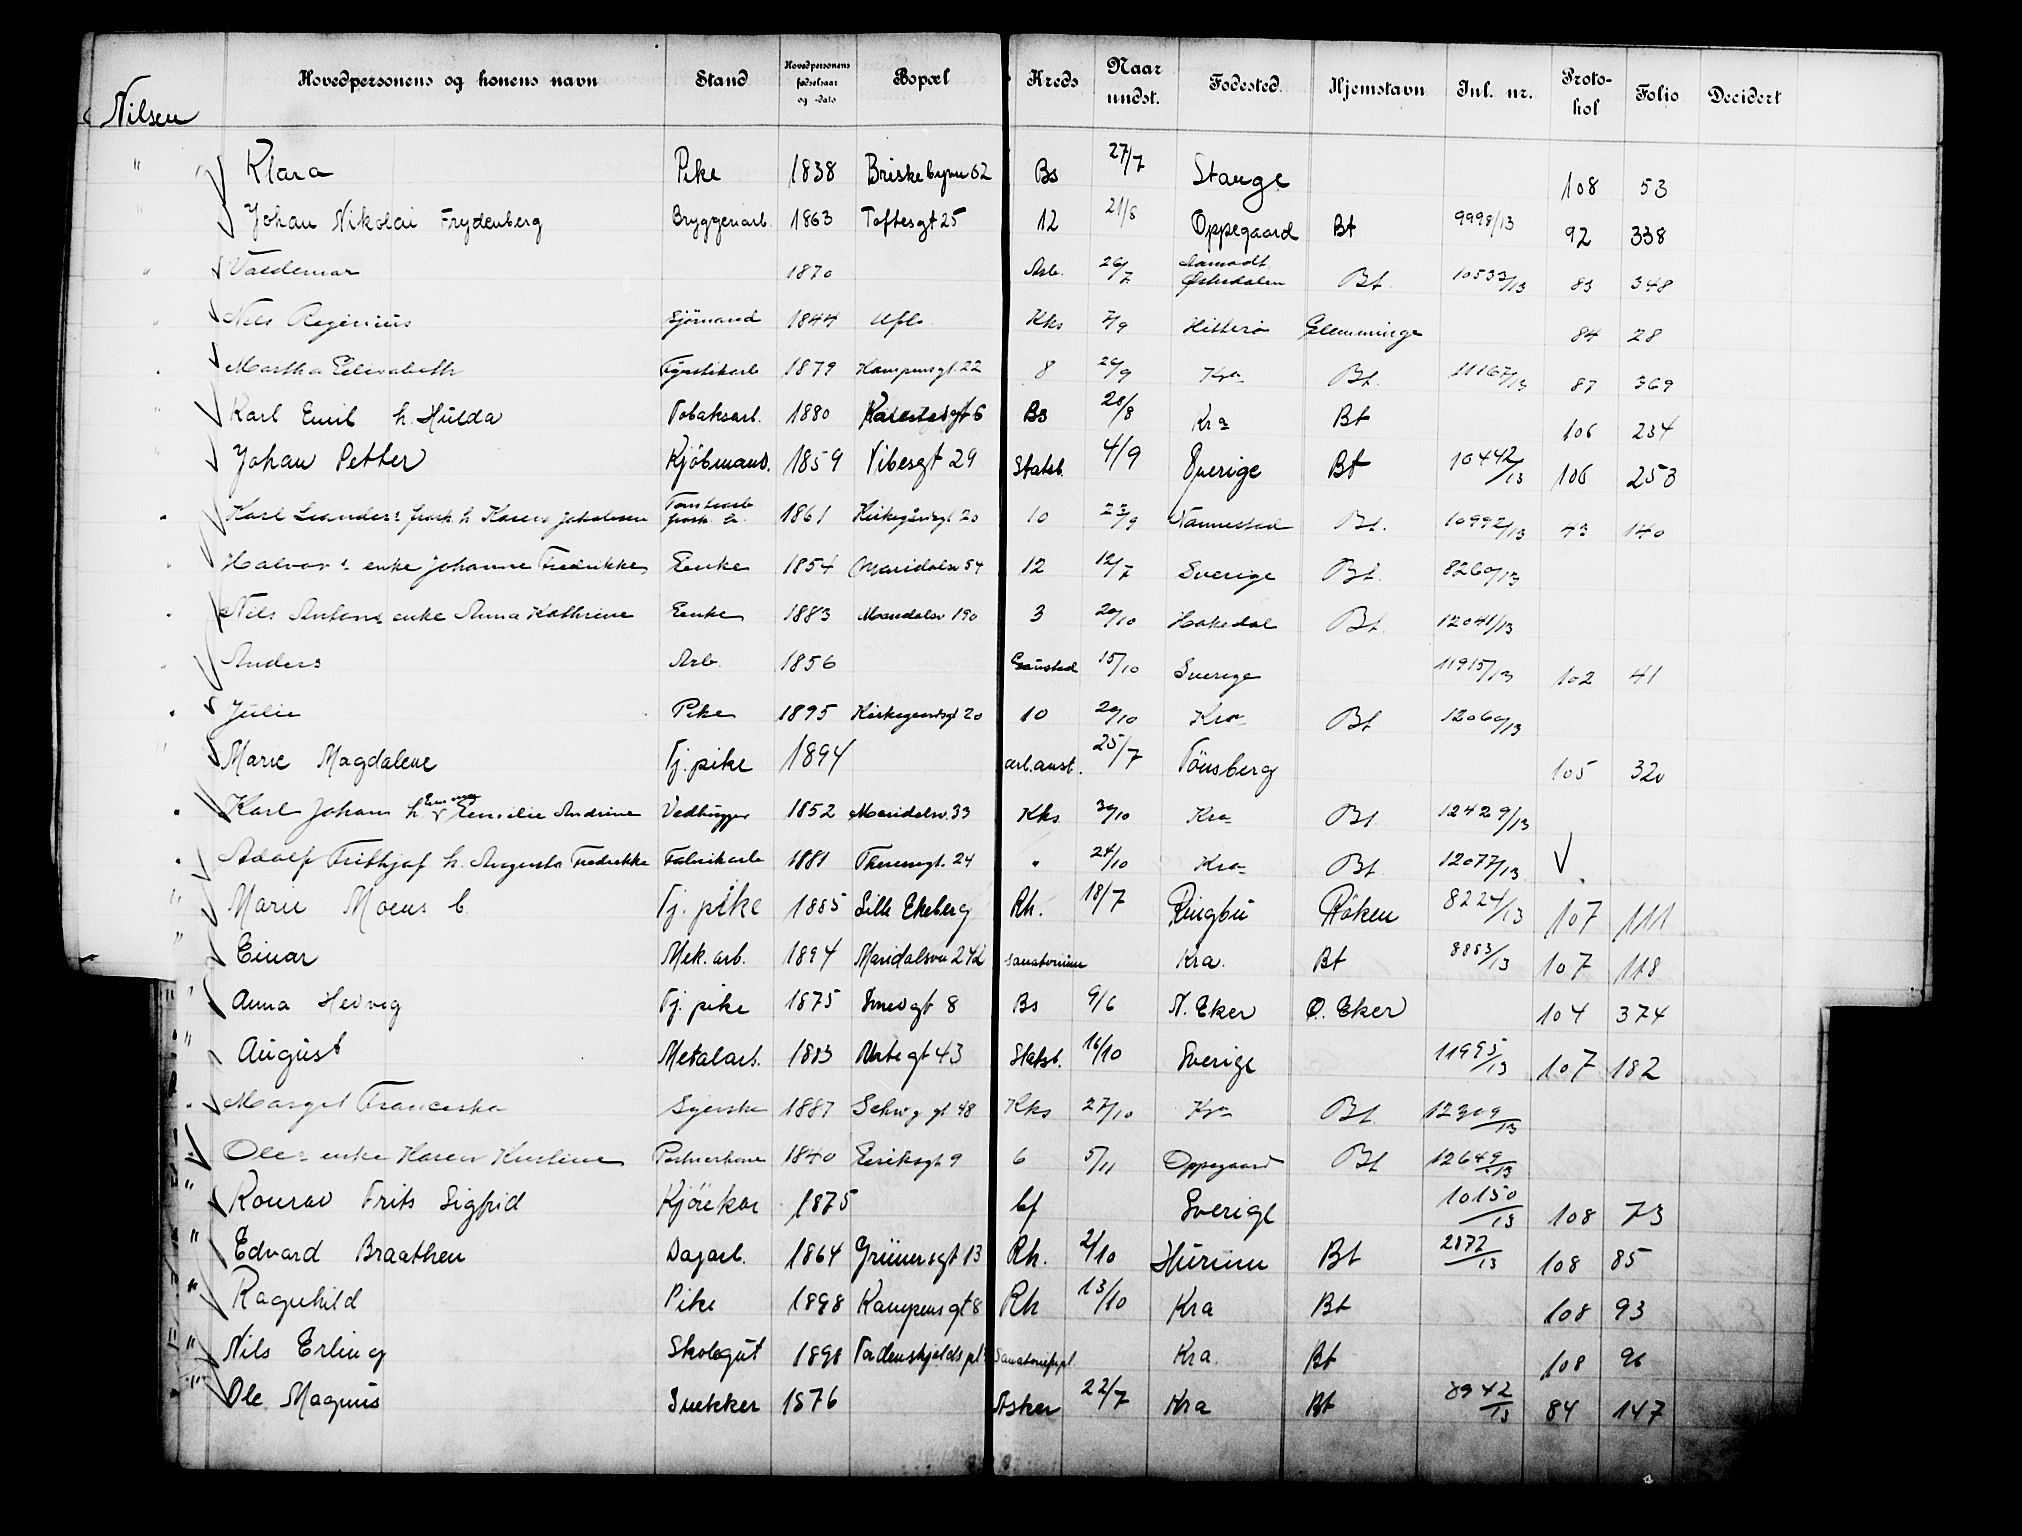 Hovedpersonens og konens navn Stand Hovedpersonens fødselsaar og -dato Bopæl Kreds Naar undst. Fødested. Hjemstavn Inl. nr. Proto-kol Folio Decidert
Nilsen
" Klara Pike 1838 Briskebyvn 62 Bs 27/7 Stange 108 53
" Johan Nikolai Frydenberg Bryggeriarb. 1863 Toftesgt 25 12 21/8 Oppegaard Bt 9998/13 92 338
" Valdemar 1870 Arb. 26/7 Aamodt Østerdalen Bt. 10533/13 83 348
" Nils Reginius Sjömand 1844 Kks 7/9 Hitterö Glemminge 84 28
" Martha Elisabeth Fyrstikarb 1879 Kampensgt. 22 8 26/9 Kra Bt. 11167/13 87 369
" Karl Emil h. Hulda Tobaksarb. 1880 6 Bs 28/8 Kra Bt 106 234
" Johan Petter Kjöbmand. 1859 Vibesgt 29 Statsb. 4/9 Sverige Bt 10442/13 106 253
" Karl Leanders frask. h. Karen Jakobsen frask. h. 1861 Kirkegårdsgt 20 10 23/9 Nannestad Bt. 10992/13 43 140
" Halvors enke Johanne Fredrikke Enke 1854 Maridalsv 54 12 12/7 Sverige Bt. 8260/13
" Nils Antons enke Anna Kathrine Enke 1883 Maridalsv 190 3 20/10 Hakedal Bt. 12041/13
" Anders Arb. 1856 Gausted 15/10 Sverige 11915/13 102 41
" Julie Pike 1895 Kirkegaardsgt 20 10 20/10 Kra Bt 12060/13
" Marie Magdalene Tj. pike 1894 arb.anst. 25/7 Tönsberg 105 320
" Karl Johan h. Emma Emilie Andrine Vedhugger 1852 Maridalsv. 33 Kks 30/10 Kra Bt. 12429/13
" Adolf Frithjof h. Augusta Fredrikke Fabrikarb 1881 Theresesgt. 24 " 24/10 Kra Bt. 12077/13
" Marie Moens Tj. pike 1885 Lille Ekeberg Rh. 18/7 Ringbu Röken 8224/13 107 111
" Einar Mek. arb. 1894 Maridalsvn 242 Sanatorium Kra. Bt 8883/13 107 118
" Anna Hedvig Tj. pike 1875 Smedgt 8 Bs 9/6 N. Eker O. Eker 104 374
" August Metalarb. 1883 Urtegt 43 Statsb. 16/10 Sverige 11995/13 107 182
" Margit Franceska Syerske 1887 Schw.g. gt 48 Kks 27/10 Kra Bt. 12309/13
" Oles enke Karen Kristine 1840 Eeriksgt 9 6 5/11 Oppegaard Bt 12649/13
" Konrad Frits Sigfrid Kjörekar 1875 Sverige 10150/13 108 73
" Edvard Braathen Dagarb. 1864 Grünersgt 13 Rh. 2/10 Hurum Bt 2872/13 108 85
" Ragnhild Pike 1898 Kampensgt 8 Rh 13/10 Kra Bt 108 93
" Nils Erling Skolegut 1898 Tordenskjolds pl Sanatoriepl Kra. Bt 108 96
" Ole Magnus Snekker 1876 Asker 22/7 Kra Bt 8942/13 84 147